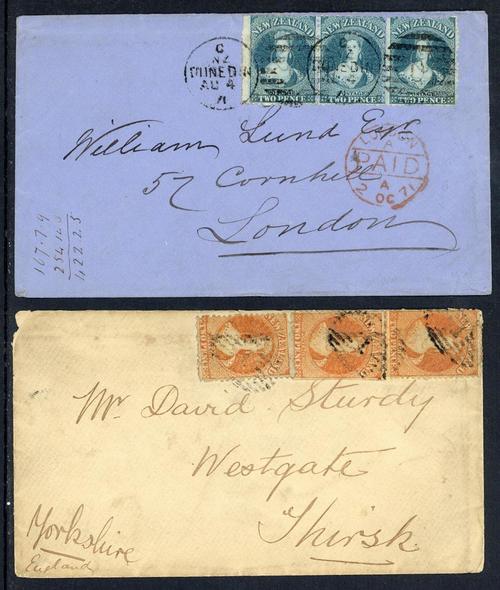 NEW ZEALAND NEW ZEALAND NEW ZEALAND
TWO PENCE TWO PENCE TWO PENCE
C
NZ
DUNEDIN
AU 4
71
William Lund Esqr
57 Cornhill
London
LONDON
A
PAID
A
2 OC 71
167.7.9
422.2.5
Mr David Sturdy
Westgate
Thirsk
Yorkshire
England